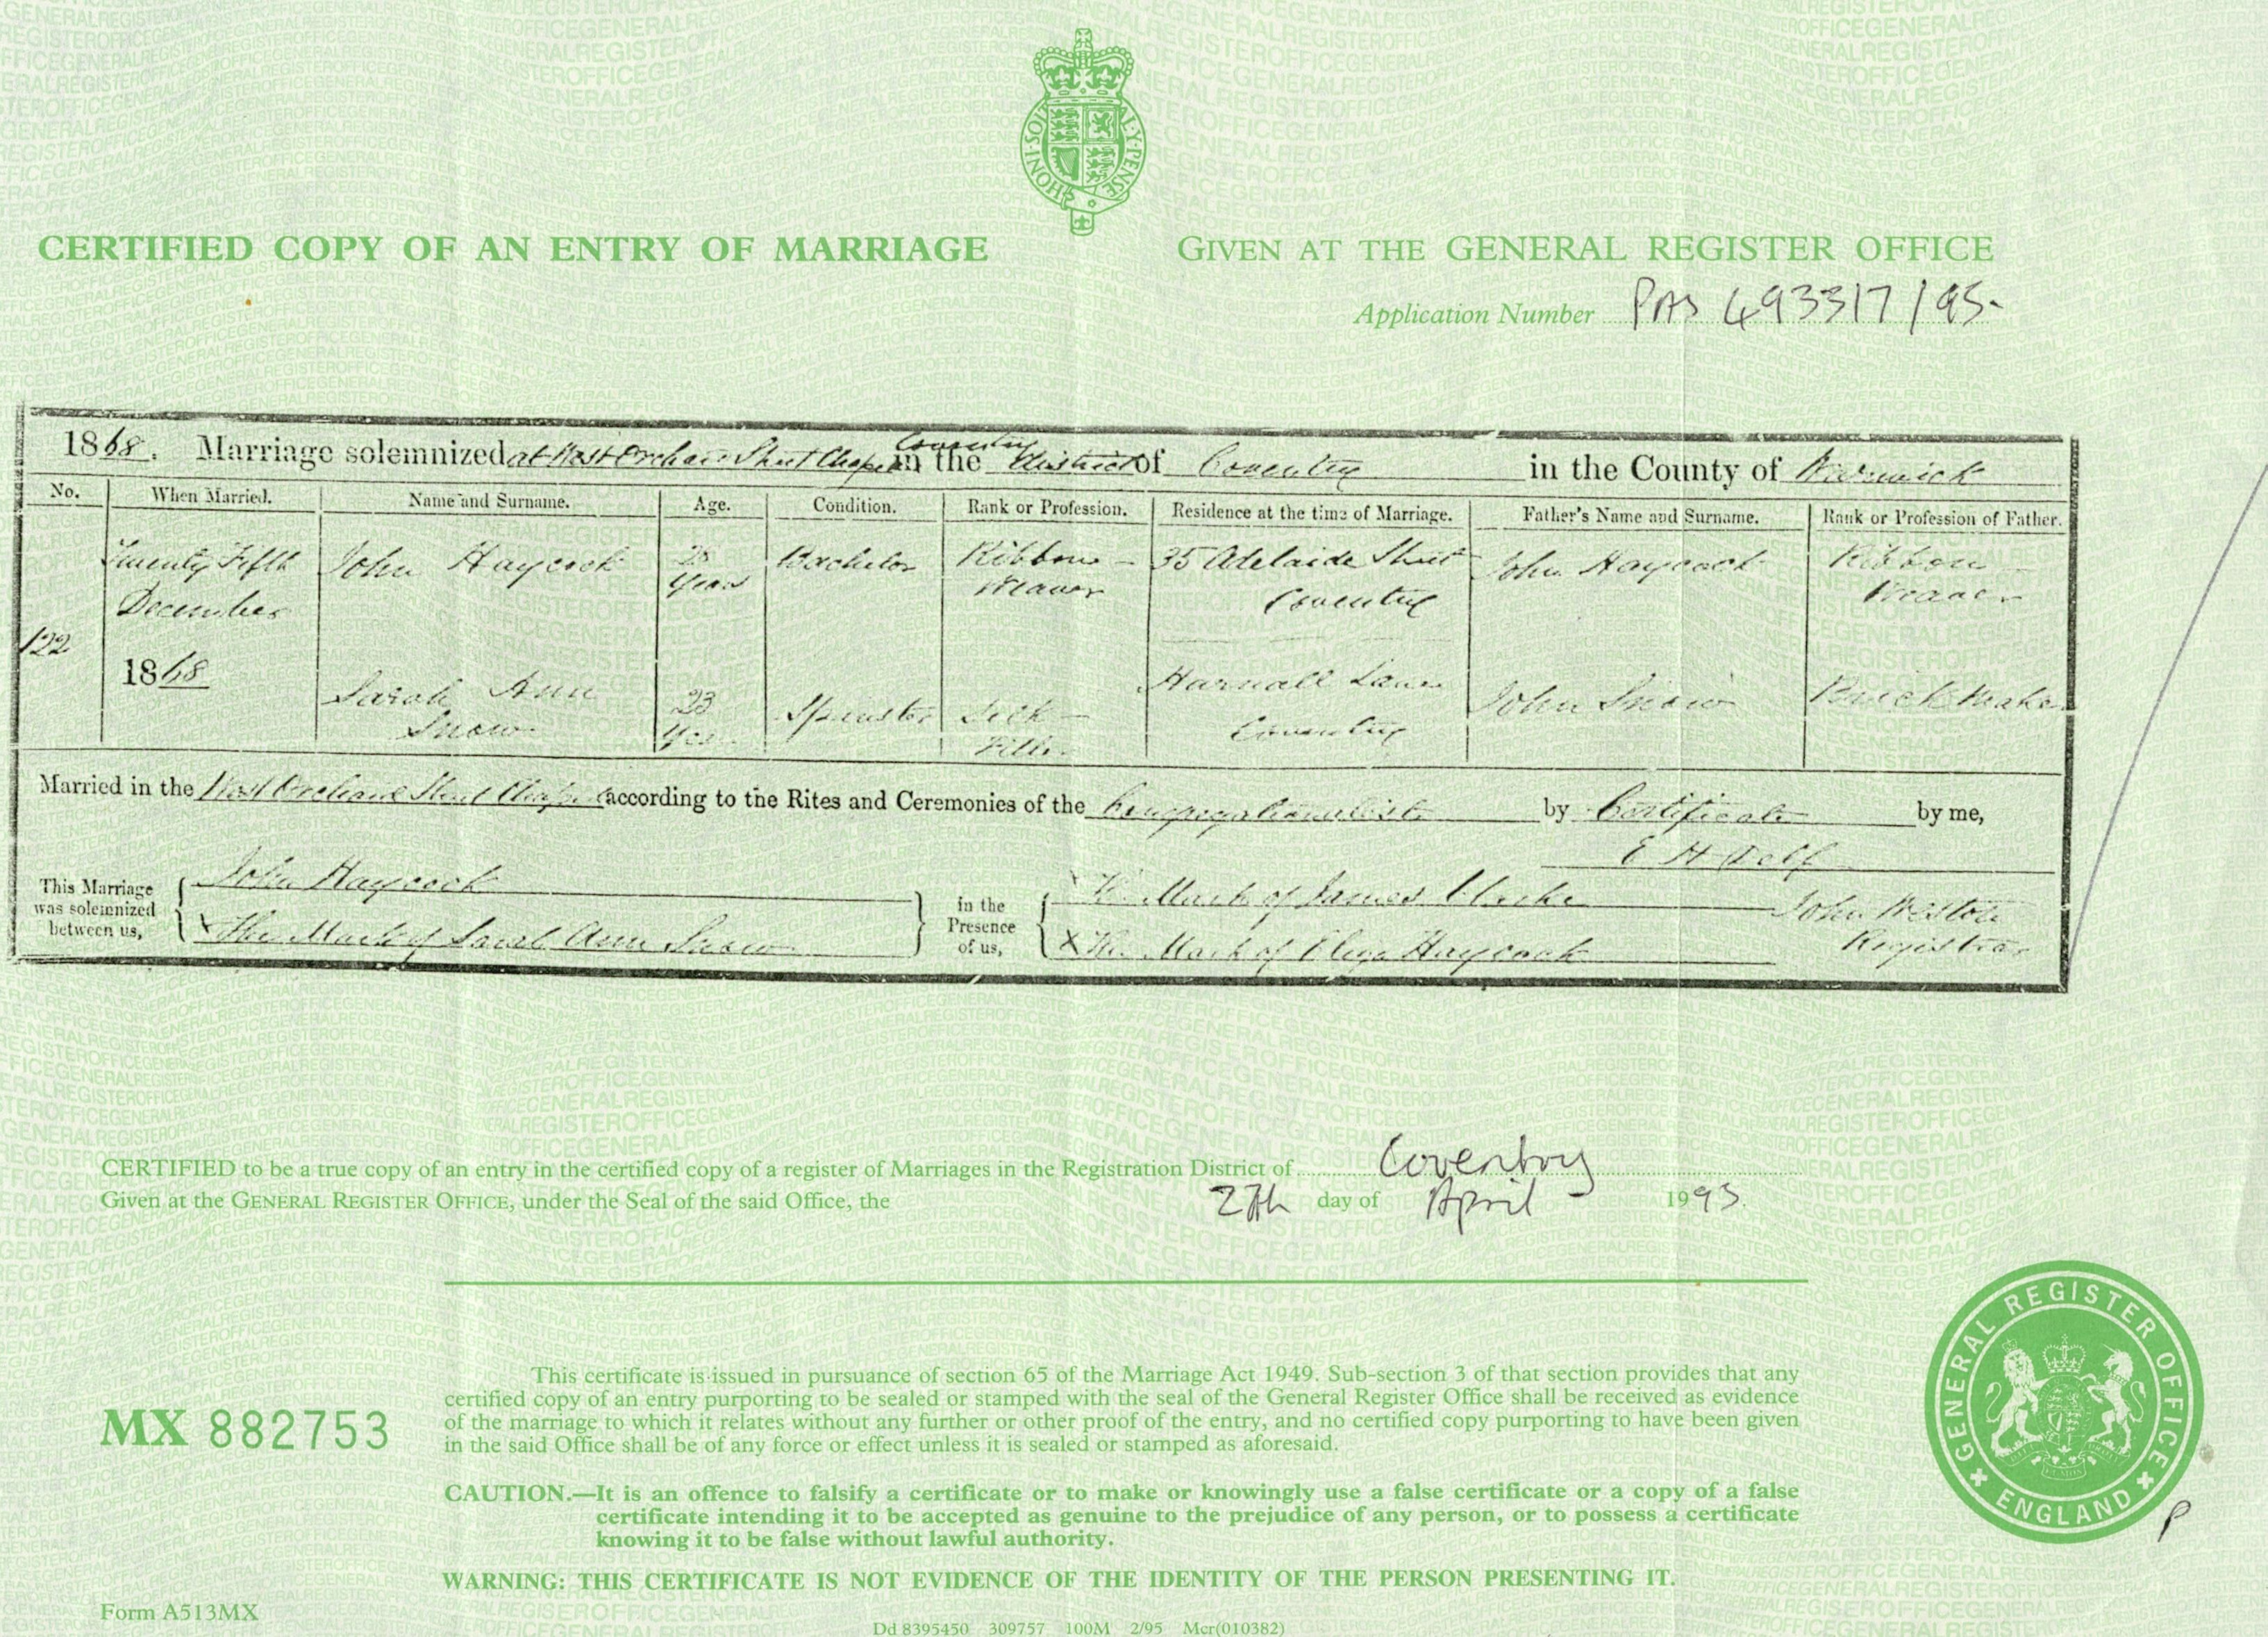 HONI·SOIT·QUI·MAL·Y·PENSE
CERTIFIED COPY OF AN ENTRY OF MARRIAGE
GIVEN AT THE GENERAL REGISTER OFFICE
Application Number PAS 493317/95
1868. Marriage solemnized at West Orchard Street Chapel in the Coventry District of Coventry in the County of Warwick
No. When Married. Name and Surname. Age. Condition. Rank or Profession. Residence at the time of Marriage. Father's Name and Surname. Rank or Profession of Father.
122
Twenty Fifth December 1868
John Haycock
Years
Bachelor
Ribbon Weaver
35 Adelaide Street Coventry
John Haycock
Ribbon Weaver
Sarah Ann Snow
23 Yrs
Spinster
Silk Filler
Harnall Lane Coventry
John Snow
Brick Maker
Married in the West Orchard Street Chapel according to the Rites and Ceremonies of the Congregationalists by Certificate by me,
E H Delf
This Marriage was solemnized between us,
John Haycock
X The Mark of Sarah Ann Snow
in the Presence of us,
X The Mark of James Clarke
X The Mark of Eliza Haycock
John Registrar
CERTIFIED to be a true copy of an entry in the certified copy of a register of Marriages in the Registration District of Coventry
Given at the GENERAL REGISTER OFFICE, under the Seal of the said Office, the 27th day of April 1995
This certificate is issued in pursuance of section 65 of the Marriage Act 1949. Sub-section 3 of that section provides that any
certified copy of an entry purporting to be sealed or stamped with the seal of the General Register Office shall be received as evidence
of the marriage to which it relates without any further or other proof of the entry, and no certified copy purporting to have been given
in the said Office shall be of any force or effect unless it is sealed or stamped as aforesaid.
MX 882753
CAUTION.—It is an offence to falsify a certificate or to make or knowingly use a false certificate or a copy of a false
certificate intending it to be accepted as genuine to the prejudice of any person, or to possess a certificate
knowing it to be false without lawful authority.
WARNING: THIS CERTIFICATE IS NOT EVIDENCE OF THE IDENTITY OF THE PERSON PRESENTING IT.
GENERAL REGISTER OFFICE
ENGLAND
P
Form A513MX
Dd 8395450 309757 100M 2/95 Mcr(010382)